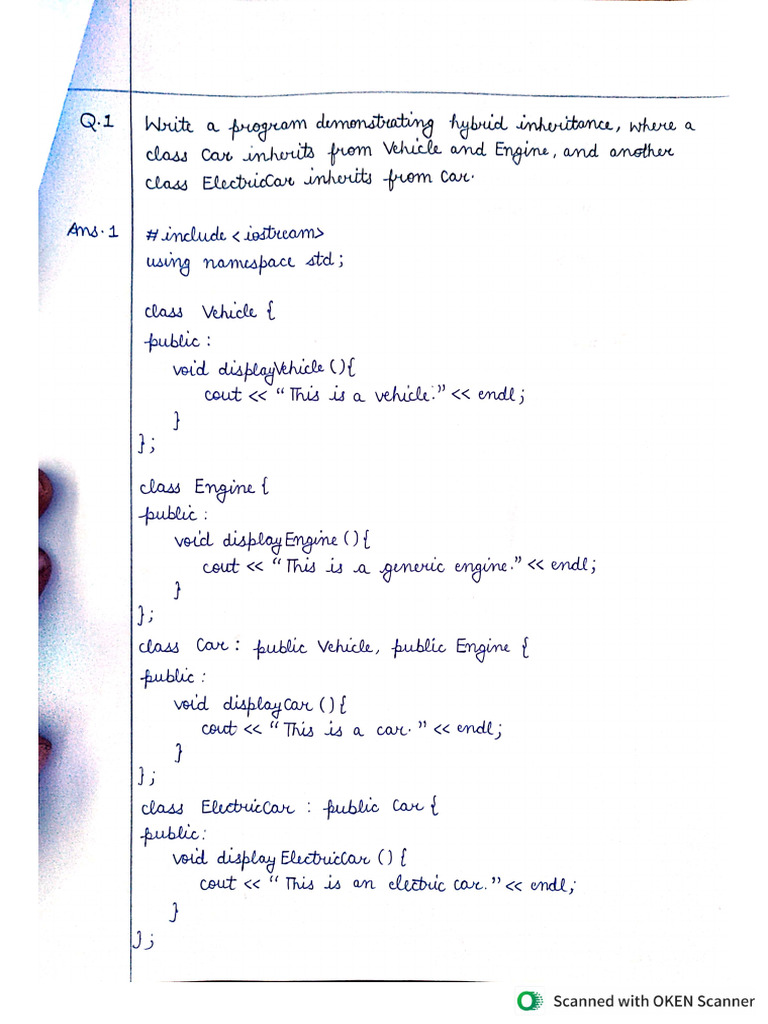 Q.1 Write a program demonstrating hybrid inheritance, where a
class Car inherits from Vehicle and Engine, and another
class ElectricCar inherits from Car.
Ans.1 #include <iostream>
using namespace std;
class Vehicle {
public:
void displayVehicle(){
cout << "This is a vehicle." << endl;
}
};
class Engine {
public:
void displayEngine(){
cout << "This is a generic engine." << endl;
}
};
class Car: public Vehicle, public Engine {
public:
void displayCar(){
cout << "This is a car." << endl;
}
};
class ElectricCar : public Car {
public:
void displayElectricCar(){
cout << "This is an electric car." << endl;
}
};
Scanned with OKEN Scanner